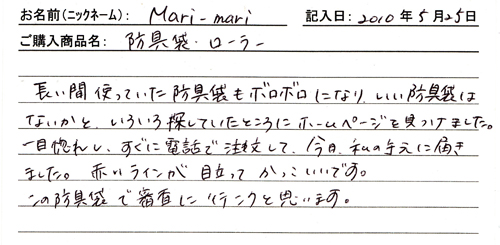 お名前(ニックネーム): Mari-mari 記入日: 2010年5月25日
ご購入商品名: 防具袋・ローラー
長い間使っていた防具袋もボロボロになり、いい防具袋は
ないかと、いろいろ探していたところにホームページを見つけました。
一目惚れし、すぐに電話で注文して、今日、私の手元に届き
ました。赤いラインが目立ってかっこいいです。
この防具袋で審査に行こうと思います。